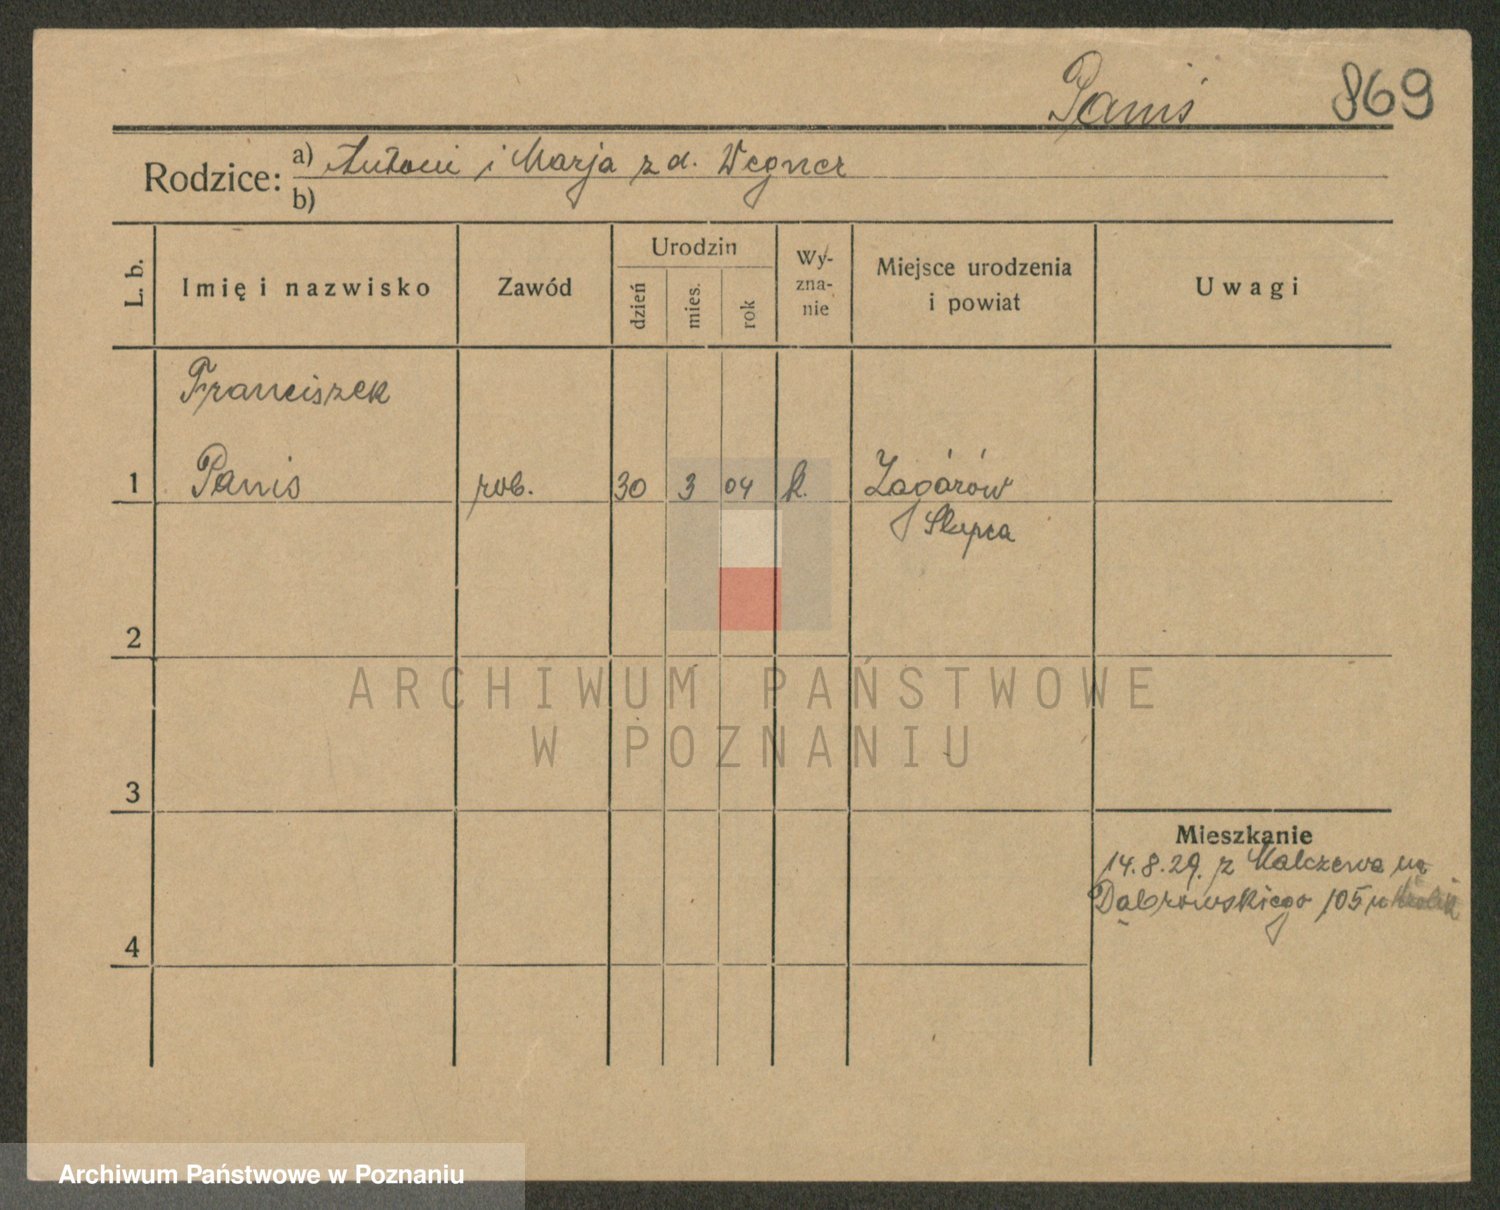 Paniś 869
Rodzice: a) Antoni i Marja z d. Wegner
b)
L. b. Imię i nazwisko Zawód Urodzin dzień mies. rok Wy-zna-nie Miejsce urodzenia i powiat Uwagi
Franciszek
1 Panis rob. 30 3 04 k. Zagórów
Słupca
2
ARCHIWUM PAŃSTWOWE
W POZNANIU
3
Mieszkanie
14.8.29. z Malczewa na
Dąbrowskiego 105 u
4
Archiwum Państwowe w Poznaniu